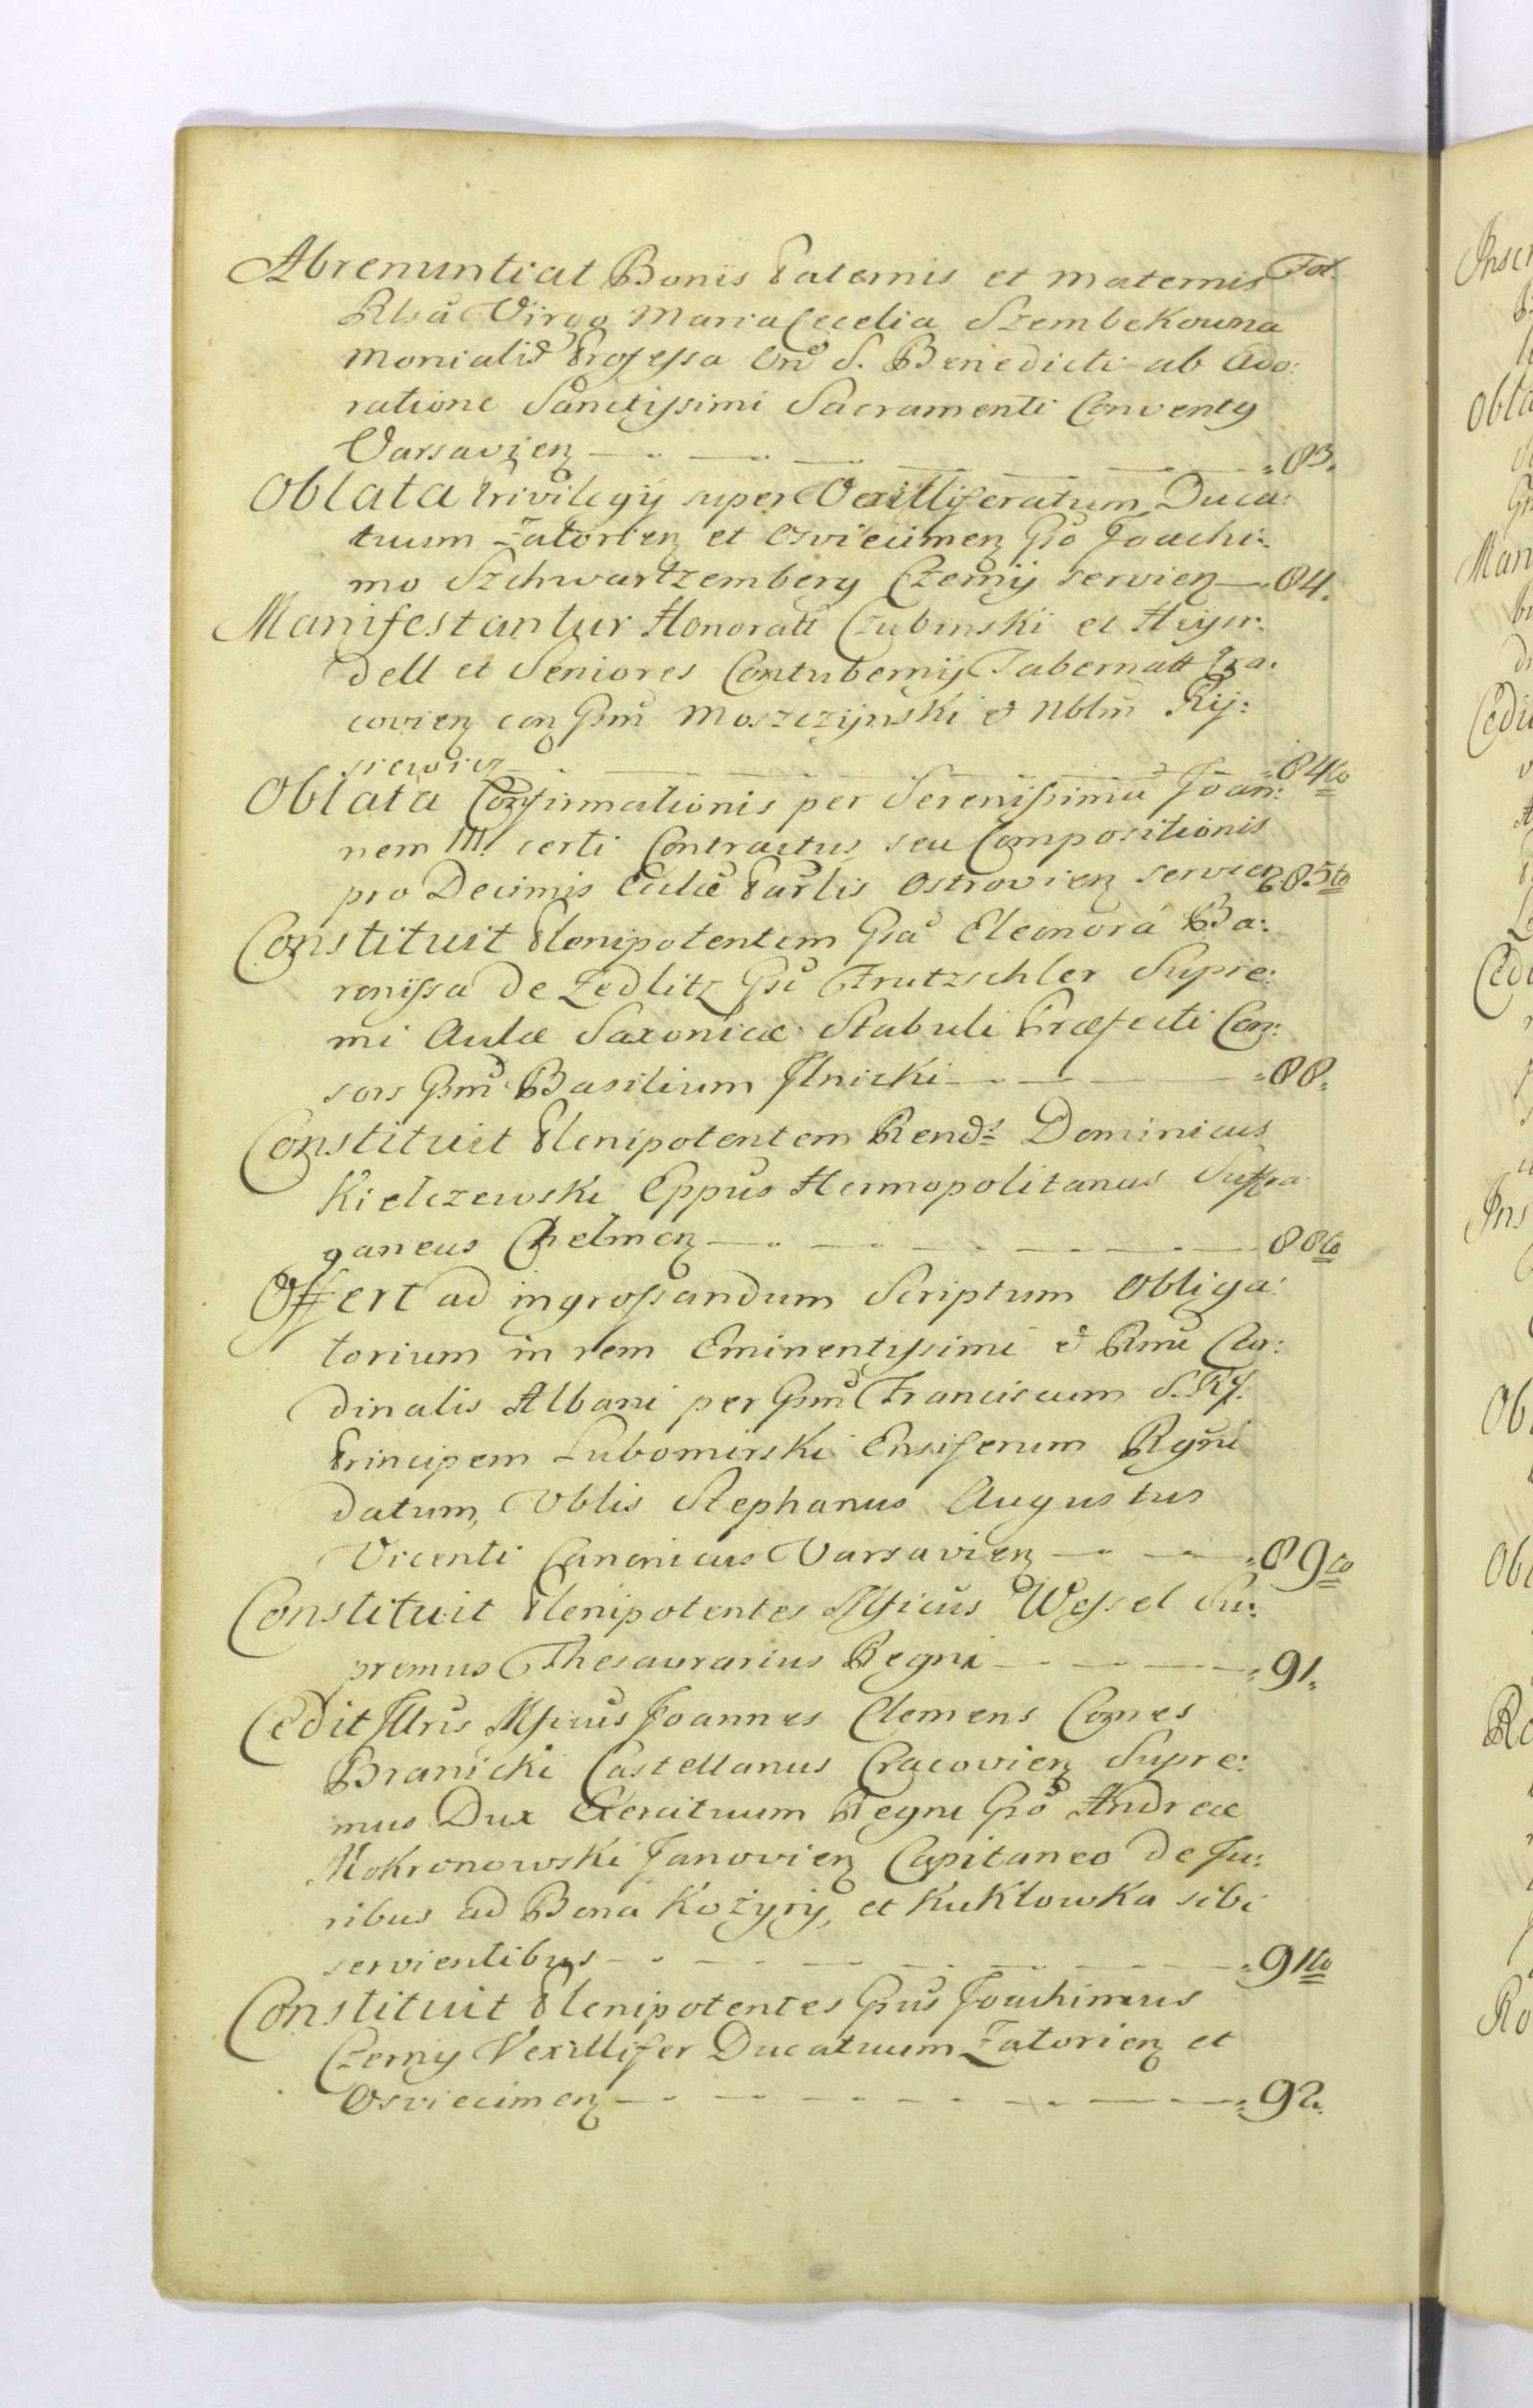 Abrenuntiat Bonis Paternis et maternis Fol.
Rlsa Virgo Maria Cecelia Szembekowna
Monialis Professa Ord S. Benedicti ab Ado:
ratione Sanctissimi Sacramenti Conventg
Varsavien — 83.
Oblata Privilegij super Vexilliferatum Duca:
tuum Zatorien et Osviecimen Gso Joachi:
mo Szchwartzemberg Czerny servien — 84.
Manifestantur Honorati Czubinski et Heyn:
dell et Seniores Contubernij Tabernatt Cra:
covien con Gsm Moszczynski et Nblm Ry:
siewicz — 84to
Oblata Confirmationis per Serenissimu Joan:
nem III. certi Contractus seu Compositionis
pro Decimis Eculae Parlis Ostrovien servien 85to
Constituit Plenipotentem Gsa Eleonora Ba:
ronissa De Zedlitz Gsi Frutzschler Supre:
mi Aulae Saxonicae Stabuli Praefecti Con:
sors Gsm Basilium Ilnicki — 88.
Constituit Plenipotentem Rends Dominicus
Kielczewski Eppus Hermopolitanus Suffra
ganeus Chelmen — 88to
Offert ad ingrossandum Scriptum Obliga:
torium in rem Eminentissimi et Rmi Car:
dinalis Albani per Gsm Franciscum S. R. J.
Principem Lubomirski Ensiferum Rgni
datum, Nblis Stephanus Augustus
Vicenti Canonicus Varsavien — 89to
Constituit Plenipotentes Mficus Wessel Su:
premus Thesaurarius Regni — 91.
Cedit Illris Mficus Joannes Clemens Comes
Branicki Castellanus Cracovien Supre:
mus Dux Exercituum Regni Gso Andreae
Mokronowski Janovien Capitaneo De Ju:
ribus ad Bona Kożyry, et Kuklowka sibi
servientibus — 91to
Constituit Plenipotentes Gsus Joachimus
Czerny Vexillifer Ducatuum Zatorien et
Osviecimen — 92.